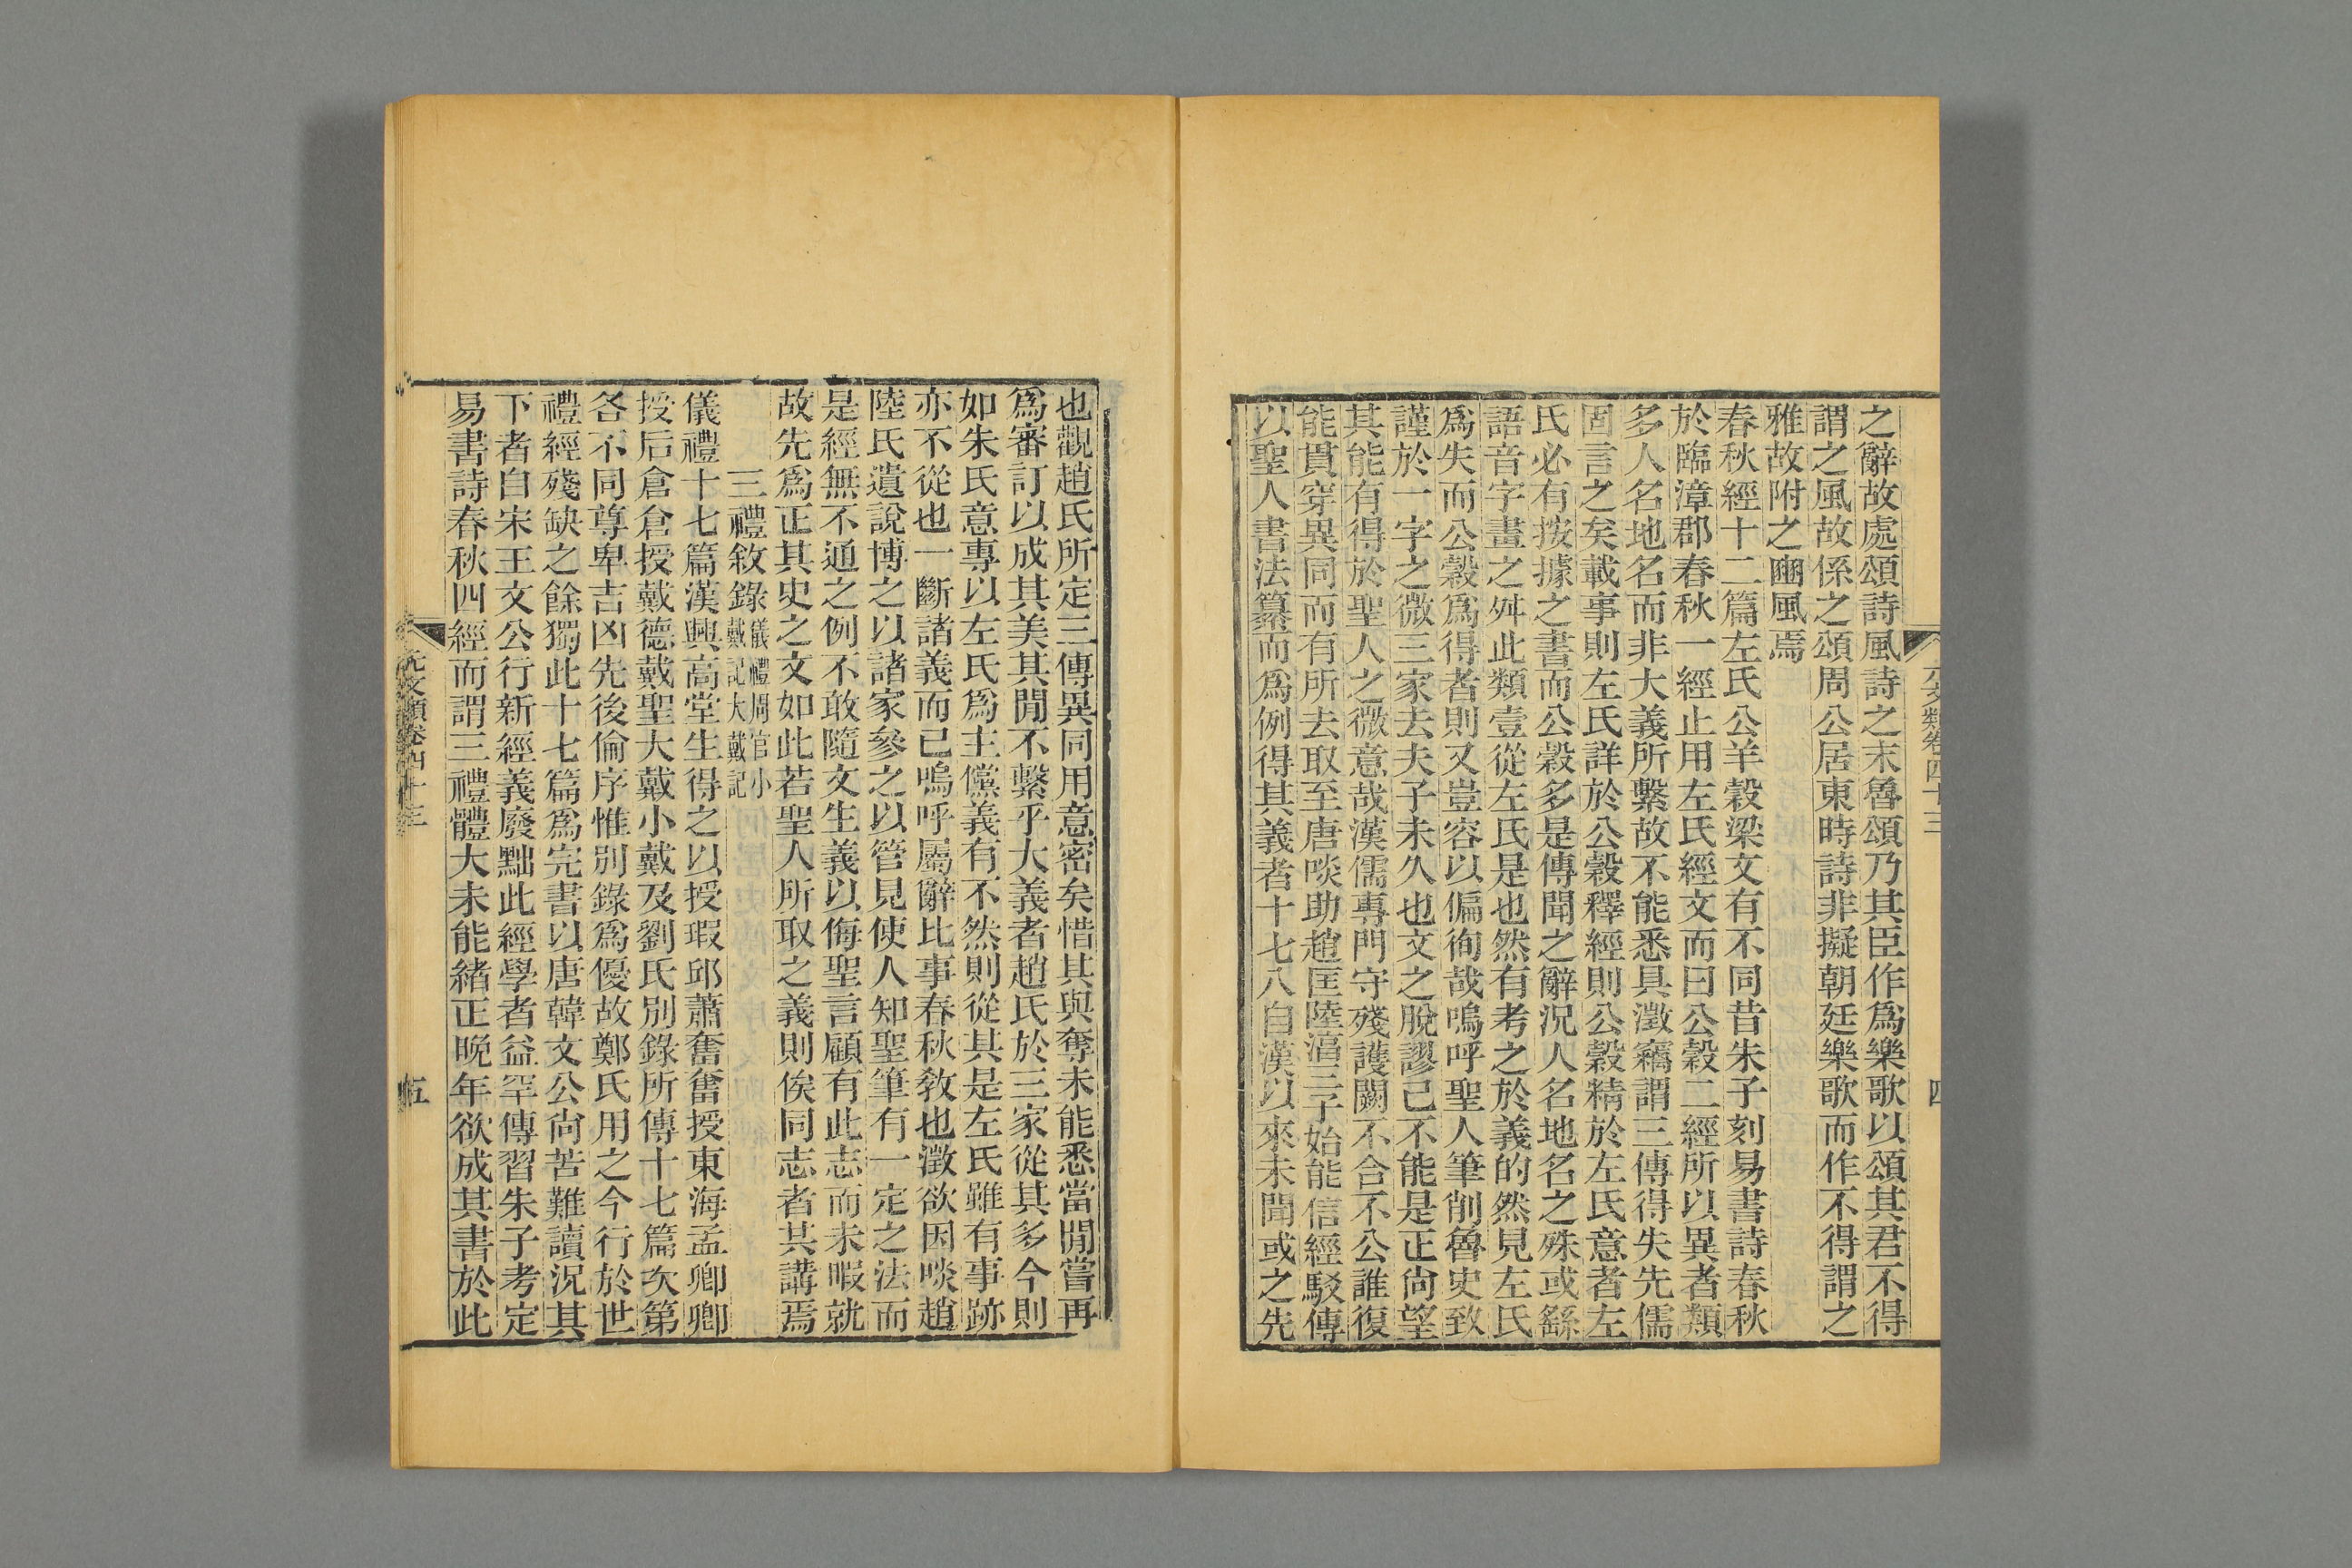 元文類卷四十三
四
之辭故處頌詩風詩之末魯頌乃其臣作爲樂歌以頌其君不得
謂之風故係之頌周公居東時詩非擬朝廷樂歌而作不得謂之
雅故附之豳風焉
春秋經十二篇左氏公羊穀梁文有不同昔朱子刻易書詩春秋
於臨漳郡春秋一經止用左氏經文而曰公穀二經所以異者類
多人名地名而非大義所繫故不能悉具澂竊謂三傳得失先儒
固言之矣載事則左氏詳於公穀釋經則公穀精於左氏意者左
氏必有按據之書而公穀多是傳聞之辭況人名地名之殊或繇
語音字畫之舛此類壹從左氏是也然有考之於義的然見左氏
爲失而公穀爲得者則又豈容以偏徇哉嗚呼聖人筆削魯史致
謹於一字之微三家去夫子未久也文之脫謬已不能是正尙望
其能有得於聖人之微意哉漢儒專門守殘護闕不合不公誰復
能貫穿異同而有所去取至唐啖助趙匡陸淳三子始能信經駁傳
以聖人書法纂而爲例得其義者十七八自漢以來未聞或之先
也觀趙氏所定三傳異同用意密矣惜其與奪未能悉當閒嘗再
爲審訂以成其美其閒不繫乎大義者趙氏於三家從其多今則
如朱氏意專以左氏爲主儻義有不然則從其是左氏雖有事跡
亦不從也一斷諸義而已嗚呼屬辭比事春秋敎也澂欲因啖趙
陸氏遺說博之以諸家參之以管見使人知聖筆有一定之法而
是經無不通之例不敢隨文生義以侮聖言顧有此志而未暇就
故先爲正其史之文如此若聖人所取之義則俟同志者共講焉
三禮敘錄儀禮周官小
戴記大戴記
儀禮十七篇漢興高堂生得之以授瑕邱蕭奮奮授東海孟卿卿
授后倉倉授戴德戴聖大戴小戴及劉氏別錄所傳十七篇次第
各不同尊卑吉凶先後倫序惟別錄爲優故鄭氏用之今行於世
禮經殘缺之餘獨此十七篇爲完書以唐韓文公尙苦難讀況其
下者自宋王文公行新經義廢黜此經學者益罕傳習朱子考定
易書詩春秋四經而謂三禮體大未能緒正晚年欲成其書於此
元文類卷四十三
五